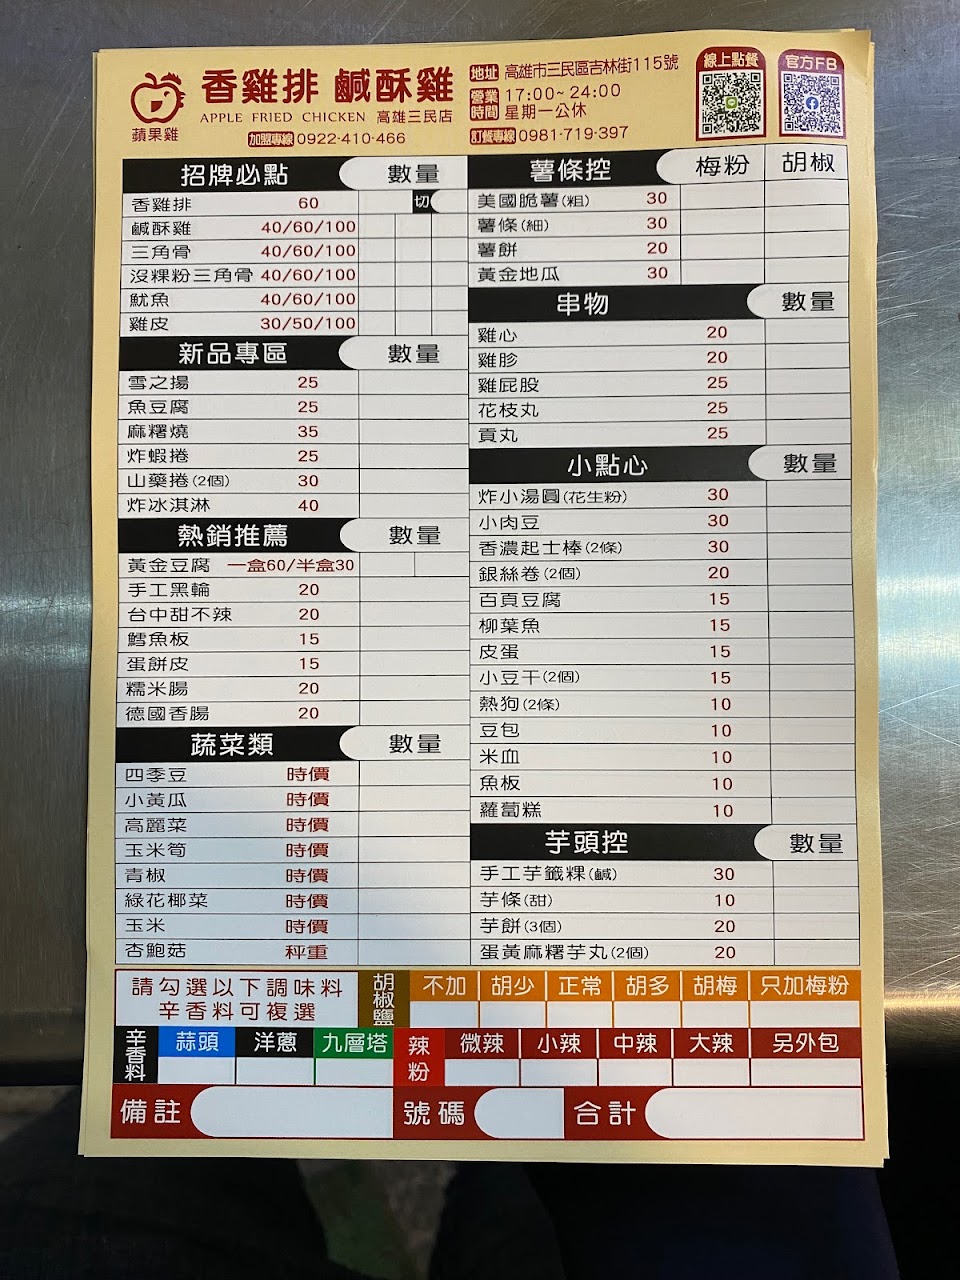 蘋果雞
香雞排 鹹酥雞
APPLE FRIED CHICKEN 高雄三民店
加盟專線 0922-410-466
地址 高雄市三民區吉林街115號
營業時間 17:00~24:00
星期一公休
訂餐專線 0981-719-397
線上點餐
官方FB
招牌必點 數量
香雞排 60 切
鹹酥雞 40/60/100
三角骨 40/60/100
沒粿粉三角骨 40/60/100
魷魚 40/60/100
雞皮 30/50/100
新品專區 數量
雪之揚 25
魚豆腐 25
麻糬燒 35
炸蝦捲 25
山藥捲(2個) 30
炸冰淇淋 40
熱銷推薦 數量
黃金豆腐 一盒60/半盒30
手工黑輪 20
台中甜不辣 20
鱈魚板 15
蛋餅皮 15
糯米腸 20
德國香腸 20
蔬菜類 數量
四季豆 時價
小黃瓜 時價
高麗菜 時價
玉米筍 時價
青椒 時價
綠花椰菜 時價
玉米 時價
杏鮑菇 秤重
薯條控 梅粉 胡椒
美國脆薯(粗) 30
薯條(細) 30
薯餅 20
黃金地瓜 30
串物 數量
雞心 20
雞胗 20
雞屁股 25
花枝丸 25
貢丸 25
小點心 數量
炸小湯圓(花生粉) 30
小肉豆 30
香濃起士棒(2條) 30
銀絲卷(2個) 20
百頁豆腐 15
柳葉魚 15
皮蛋 15
小豆干(2個) 15
熱狗(2條) 10
豆包 10
米血 10
魚板 10
蘿蔔糕 10
芋頭控 數量
手工芋籤粿(鹹) 30
芋條(甜) 10
芋餅(3個) 20
蛋黃麻糬芋丸(2個) 20
請勾選以下調味料
辛香料可複選
胡椒鹽 不加 胡少 正常 胡多 胡梅 只加梅粉
辛香料 蒜頭 洋蔥 九層塔 辣粉 微辣 小辣 中辣 大辣 另外包
備註 號碼 合計